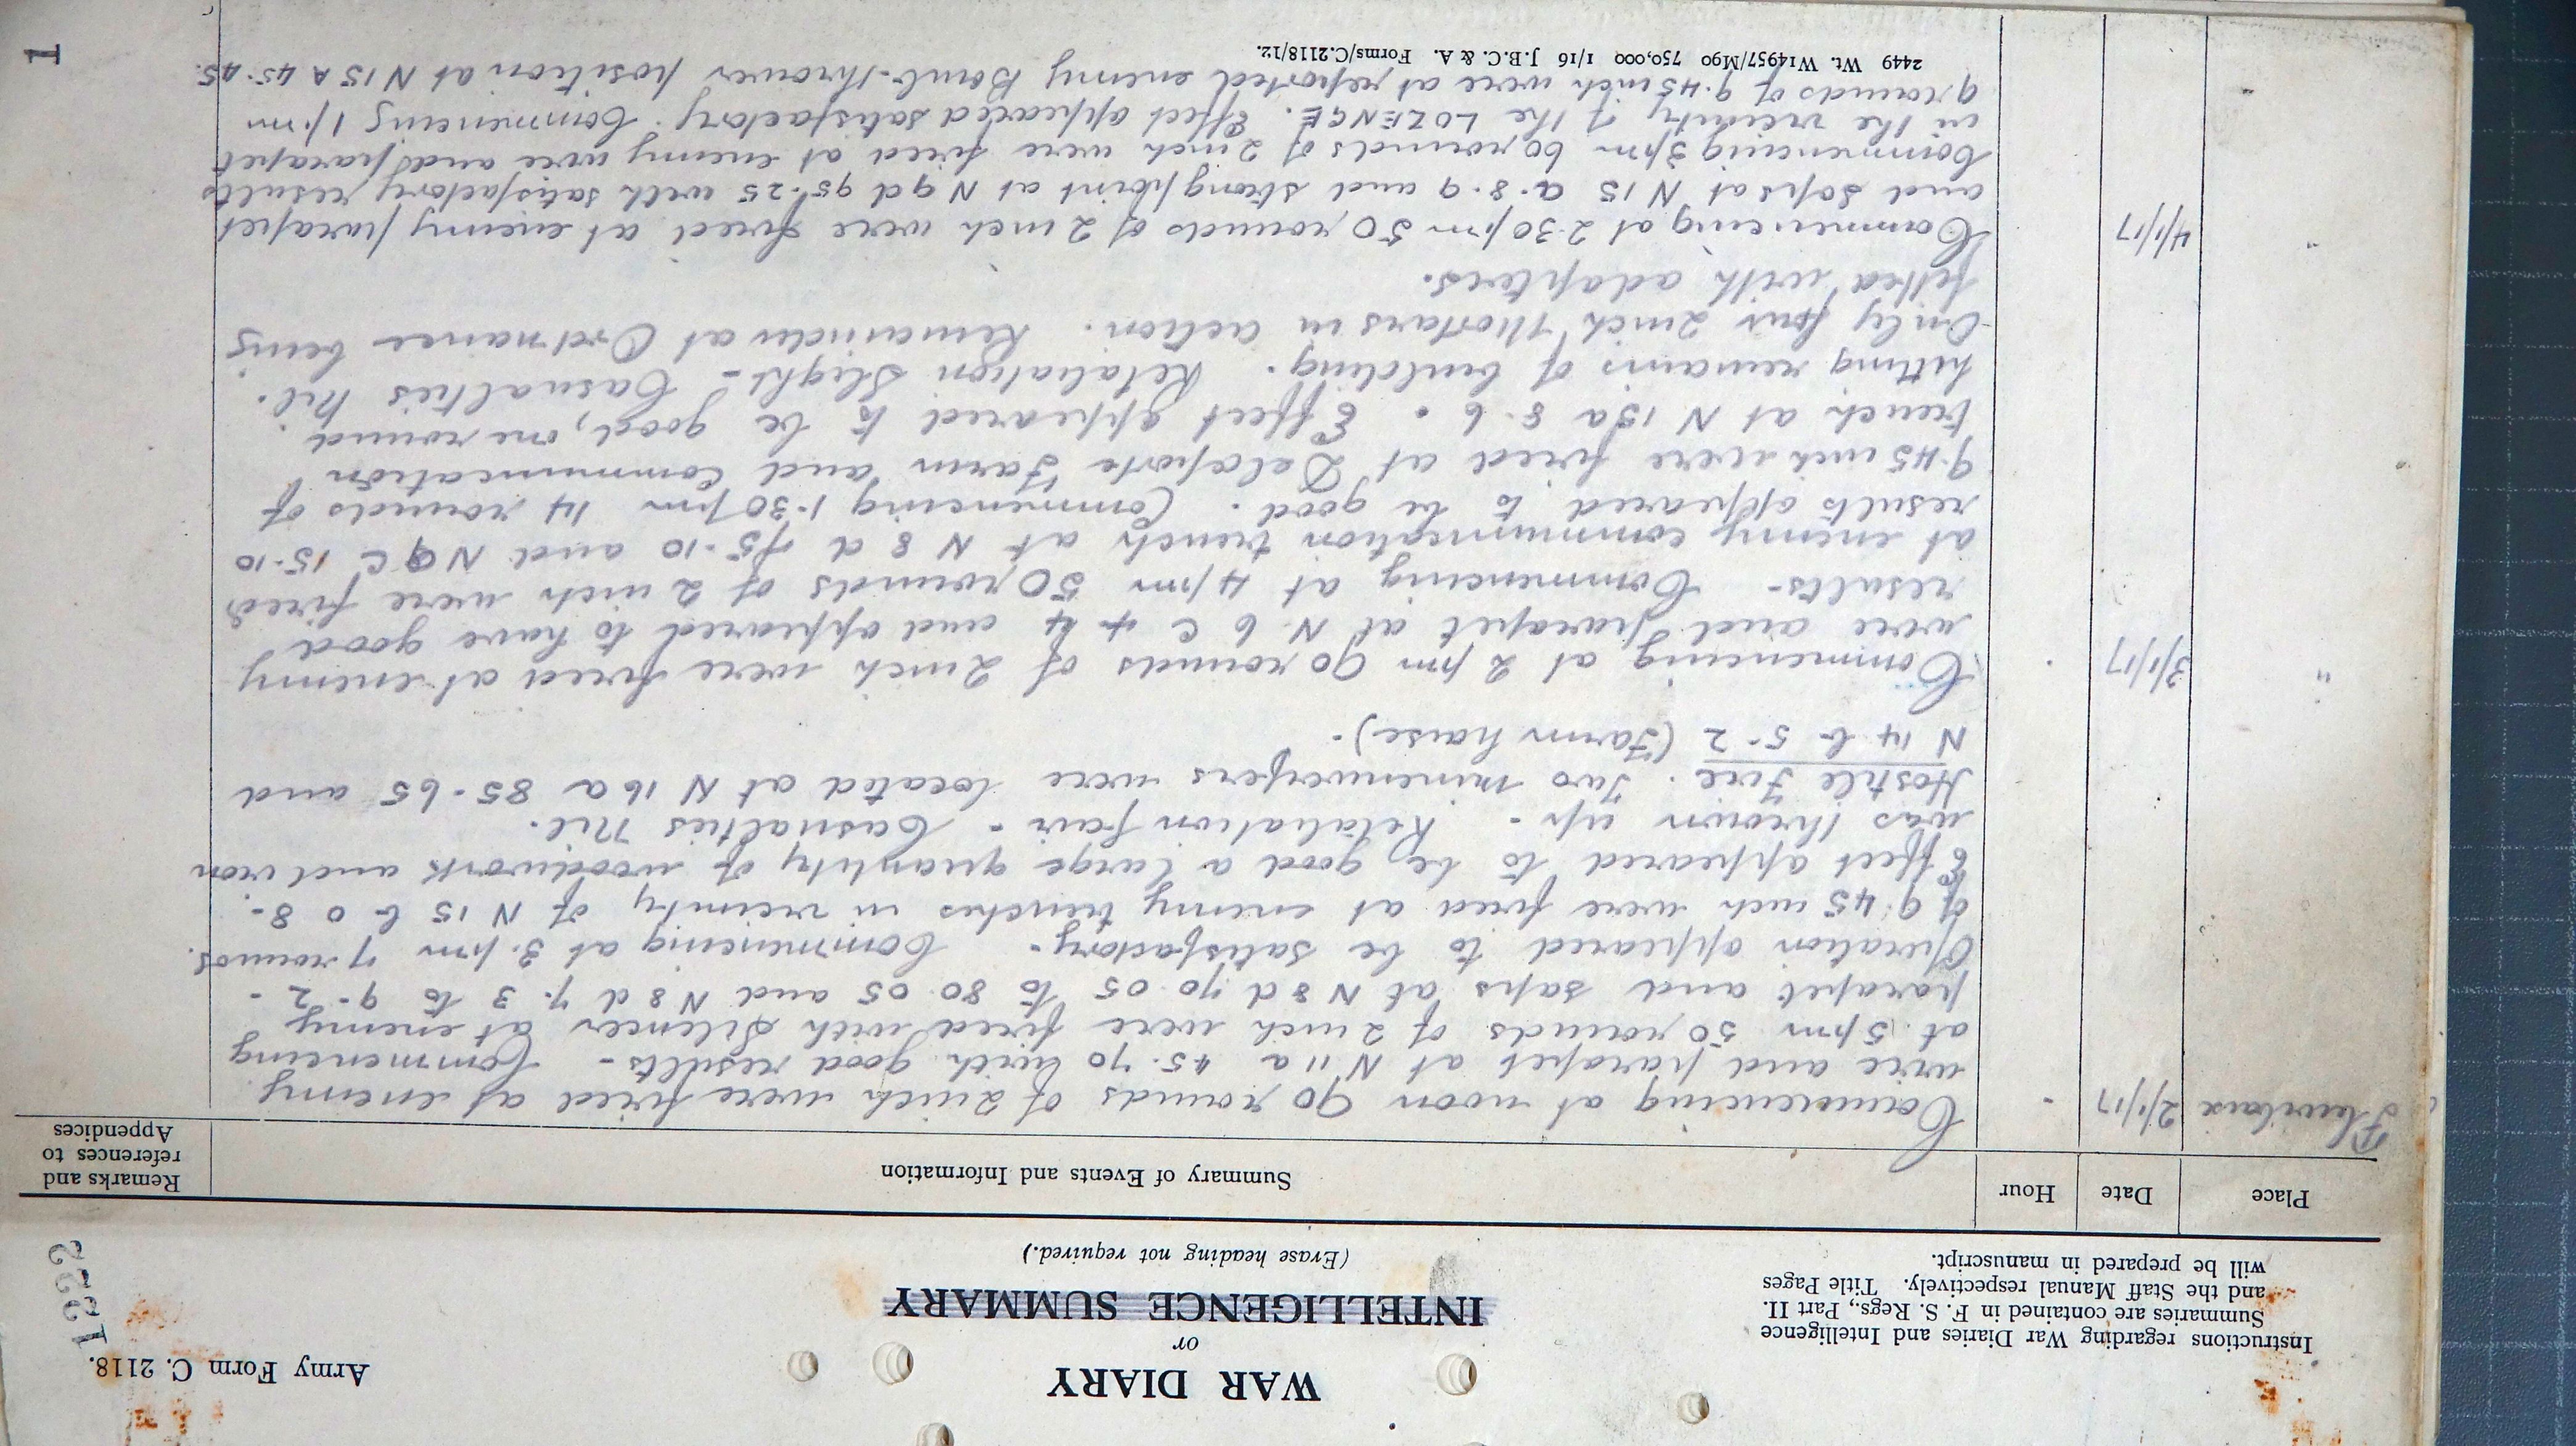 Army Form C. 2118.
WAR DIARY
or
INTELLIGENCE SUMMARY
(Erase heading not required.)
Instructions regarding War Diaries and Intelligence
Summaries are contained in F. S. Regs., Part II.
and the Staff Manual respectively. Title Pages
will be prepared in manuscript.
Place Date Hour Summary of Events and Information Remarks and references to Appendices
Fleurbaix 2/1/17 Commencing at noon 90 rounds of 2 inch were fired at enemy
wire and parapet at N 11 a 45.70 with good results - Commencing
at 5 pm 50 rounds of 2 inch were fired with Silencer at enemy
parapet and saps at N 8 d 70.05 to 80.05 and N 8 d 7.3 to 9.2 -
Operation appeared to be satisfactory - Commencing at 3.pm 7 rounds.
of 9.45 inch were fired at enemy trenches in vicinity of N 15 b 0 8 -
Effect appeared to be good a large quantity of woodwork and iron
was thrown up - Retaliation fair - Casualties Nil.
Hostile Fire. Two minenwerfers were located at N 16 a 85.65 and
N 14 b 5.2 (Farm house) -
" 3/1/17 Commencing at 2 pm 90 rounds of 2 inch were fired at enemy
were and parapet at N 6 c 4 4 and appeared to have good
results - Commencing at 4 pm 50 rounds of 2 inch were fired
at enemy communication trench at N 8 d 75.10 and N 9 c 15.10
results appeared to be good. Commencing 1.30 pm 14 rounds of
9.45 inch were fired at Delaporte Farm and communication
trench at N 15 a 8.6. Effect appeared to be good, one round
hitting remains of building. Retaliation Slight - Casualties Nil.
Only four 2 inch Mortars in action. Remainder at Ordnance being
fitted with adapters.
" 4/1/17 Commencing at 2.30 pm 50 rounds of 2 inch were fired at enemy parapet
and saps at N 15 a.8.9 and strong point at N 9 d 95.25 with satisfactory results
Commencing 3 pm 60 rounds of 2 inch were fired at enemy wire and parapet
in the vicinity of the LOZENGE. Effect appeared satisfactory. Commencing 1 pm
" 9 rounds of 9.45 inch were at reported enemy Bomb-thrower position at N 15 A 45.45.
2449 Wt. W14957/M90 750,000 1/16 J.B.C. & A. Forms/C.2118/12.
1